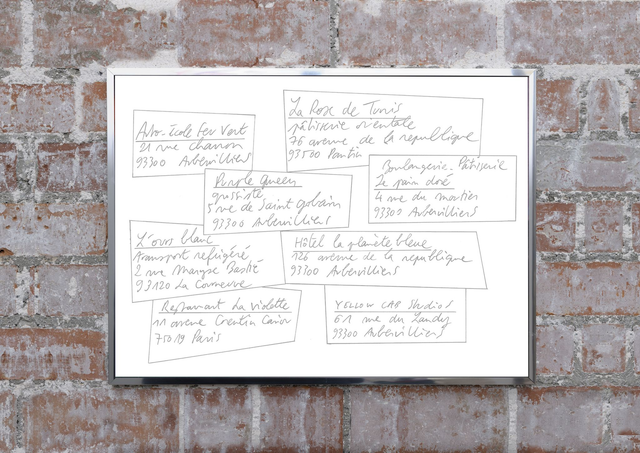 Auto-école Feu Vert
21 rue charron
93300 Aubervilliers
La Rose de Tunis
pâtisserie orientale
76 avenue de la republique
93500 Pantin
Purple Queen
grossiste
5 rue de Saint gobain
93300 Aubervilliers
Boulangerie. Pâtisserie
Le pain doré
4 rue du moutier
93300 Aubervilliers
L'ours blanc
transport refrigéré
2 rue Maryse Bastié
93120 La Courneuve
Hôtel la planète bleue
126 avenue de la republique
93300 Aubervilliers
Restaurant La violette
11 avenue Corentin Cariou
75019 Paris
YELLOW CAB Studios
61 rue du Landy
93300 Aubervilliers